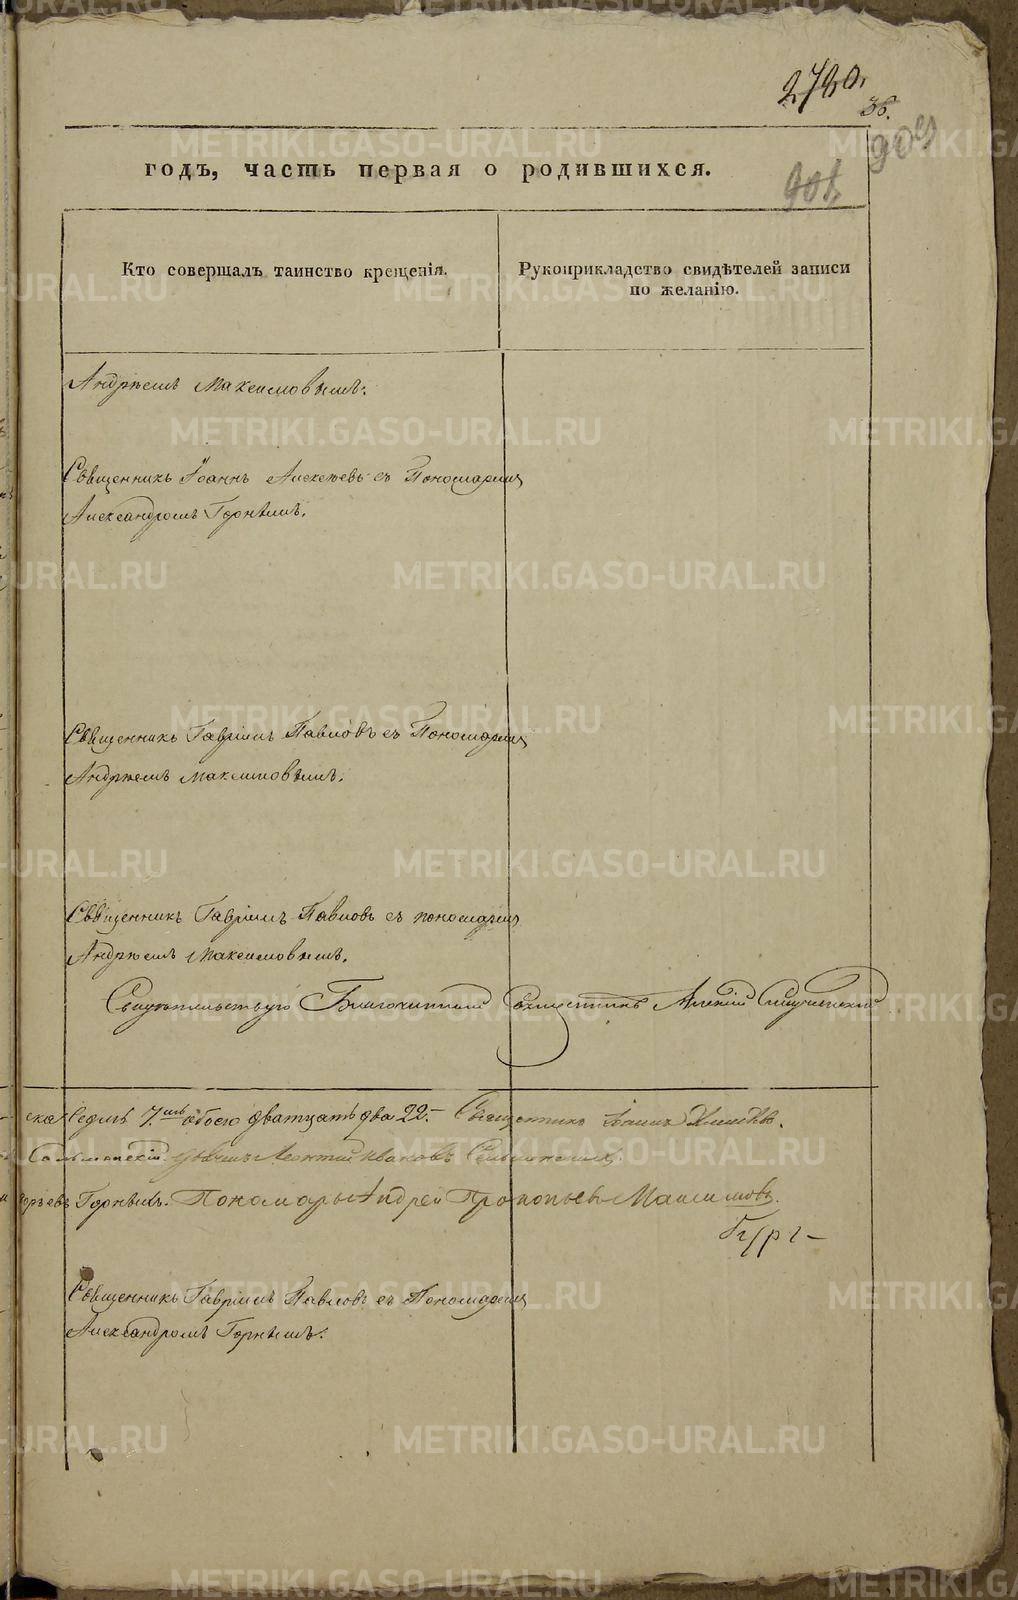 2720.
36.
годъ, часть первая о родившихся.
901
Кто совершалъ таинство крещенія.
Рукоприкладство свидѣтелей записи
по желанію.
Андреемъ Максимовымъ.
Священникъ Іоаннъ Алексѣевъ съ Пономаремъ
Александромъ Горнымъ.
Священникъ Гавріилъ Павловъ съ Пономаремъ
Андреемъ Максимовымъ.
Священникъ Гавріилъ Павловъ съ пономаремъ
Андреемъ Максимовымъ.
Свидѣтельствую Благочинный Священникъ Алексій
седмь 7. обоего дватцать два 22. – Священникъ Іоаннъ
Леонтій Ивановъ
Горныхъ. Пономарь Андрей Прокопьевъ Максимовъ.
Священникъ Гавріилъ Павловъ съ Пономаремъ
Александромъ Горнымъ.
METRIKI.GASO-URAL.RU